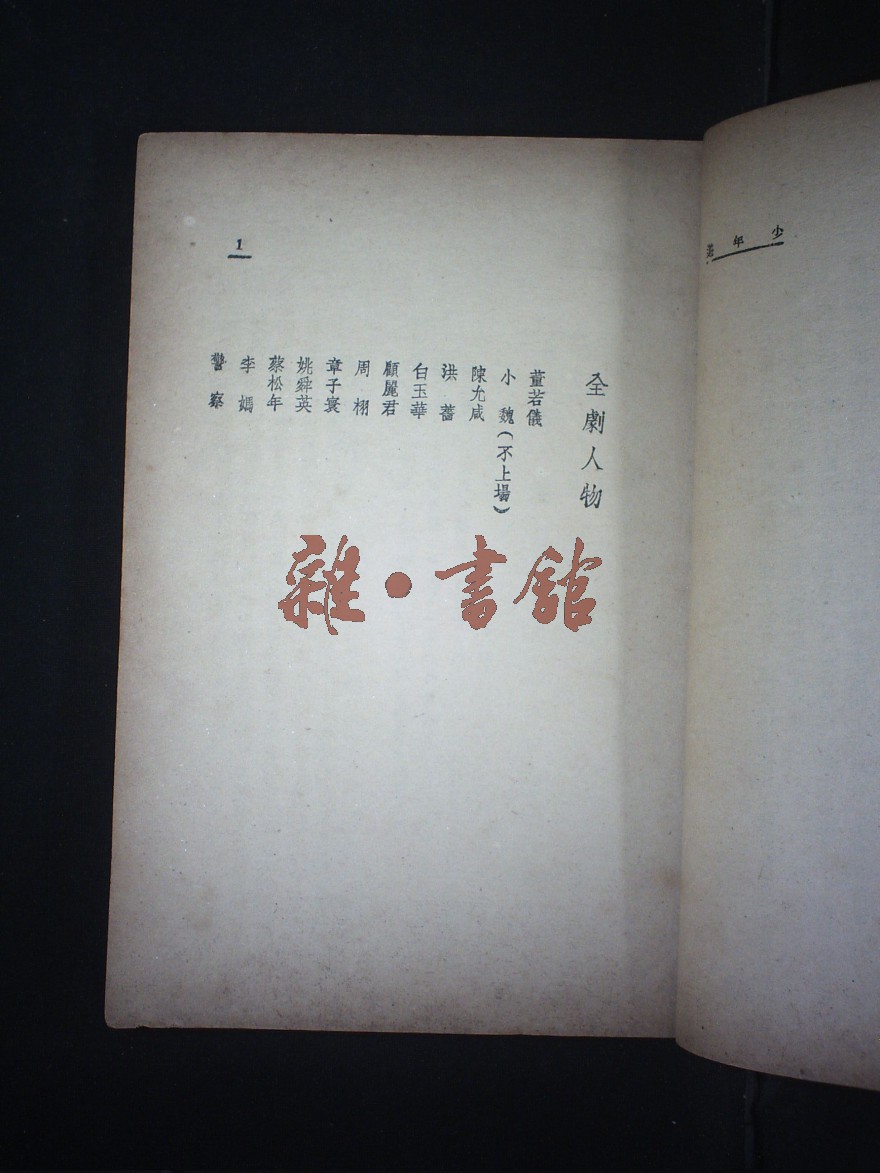 少年游
1
全劇人物
董若儀
小魏(不上場)
陳允咸
洪薔
白玉華
顧麗君
周栩
章子寰
姚舜英
蔡松年
李媽
警察
雜・書館